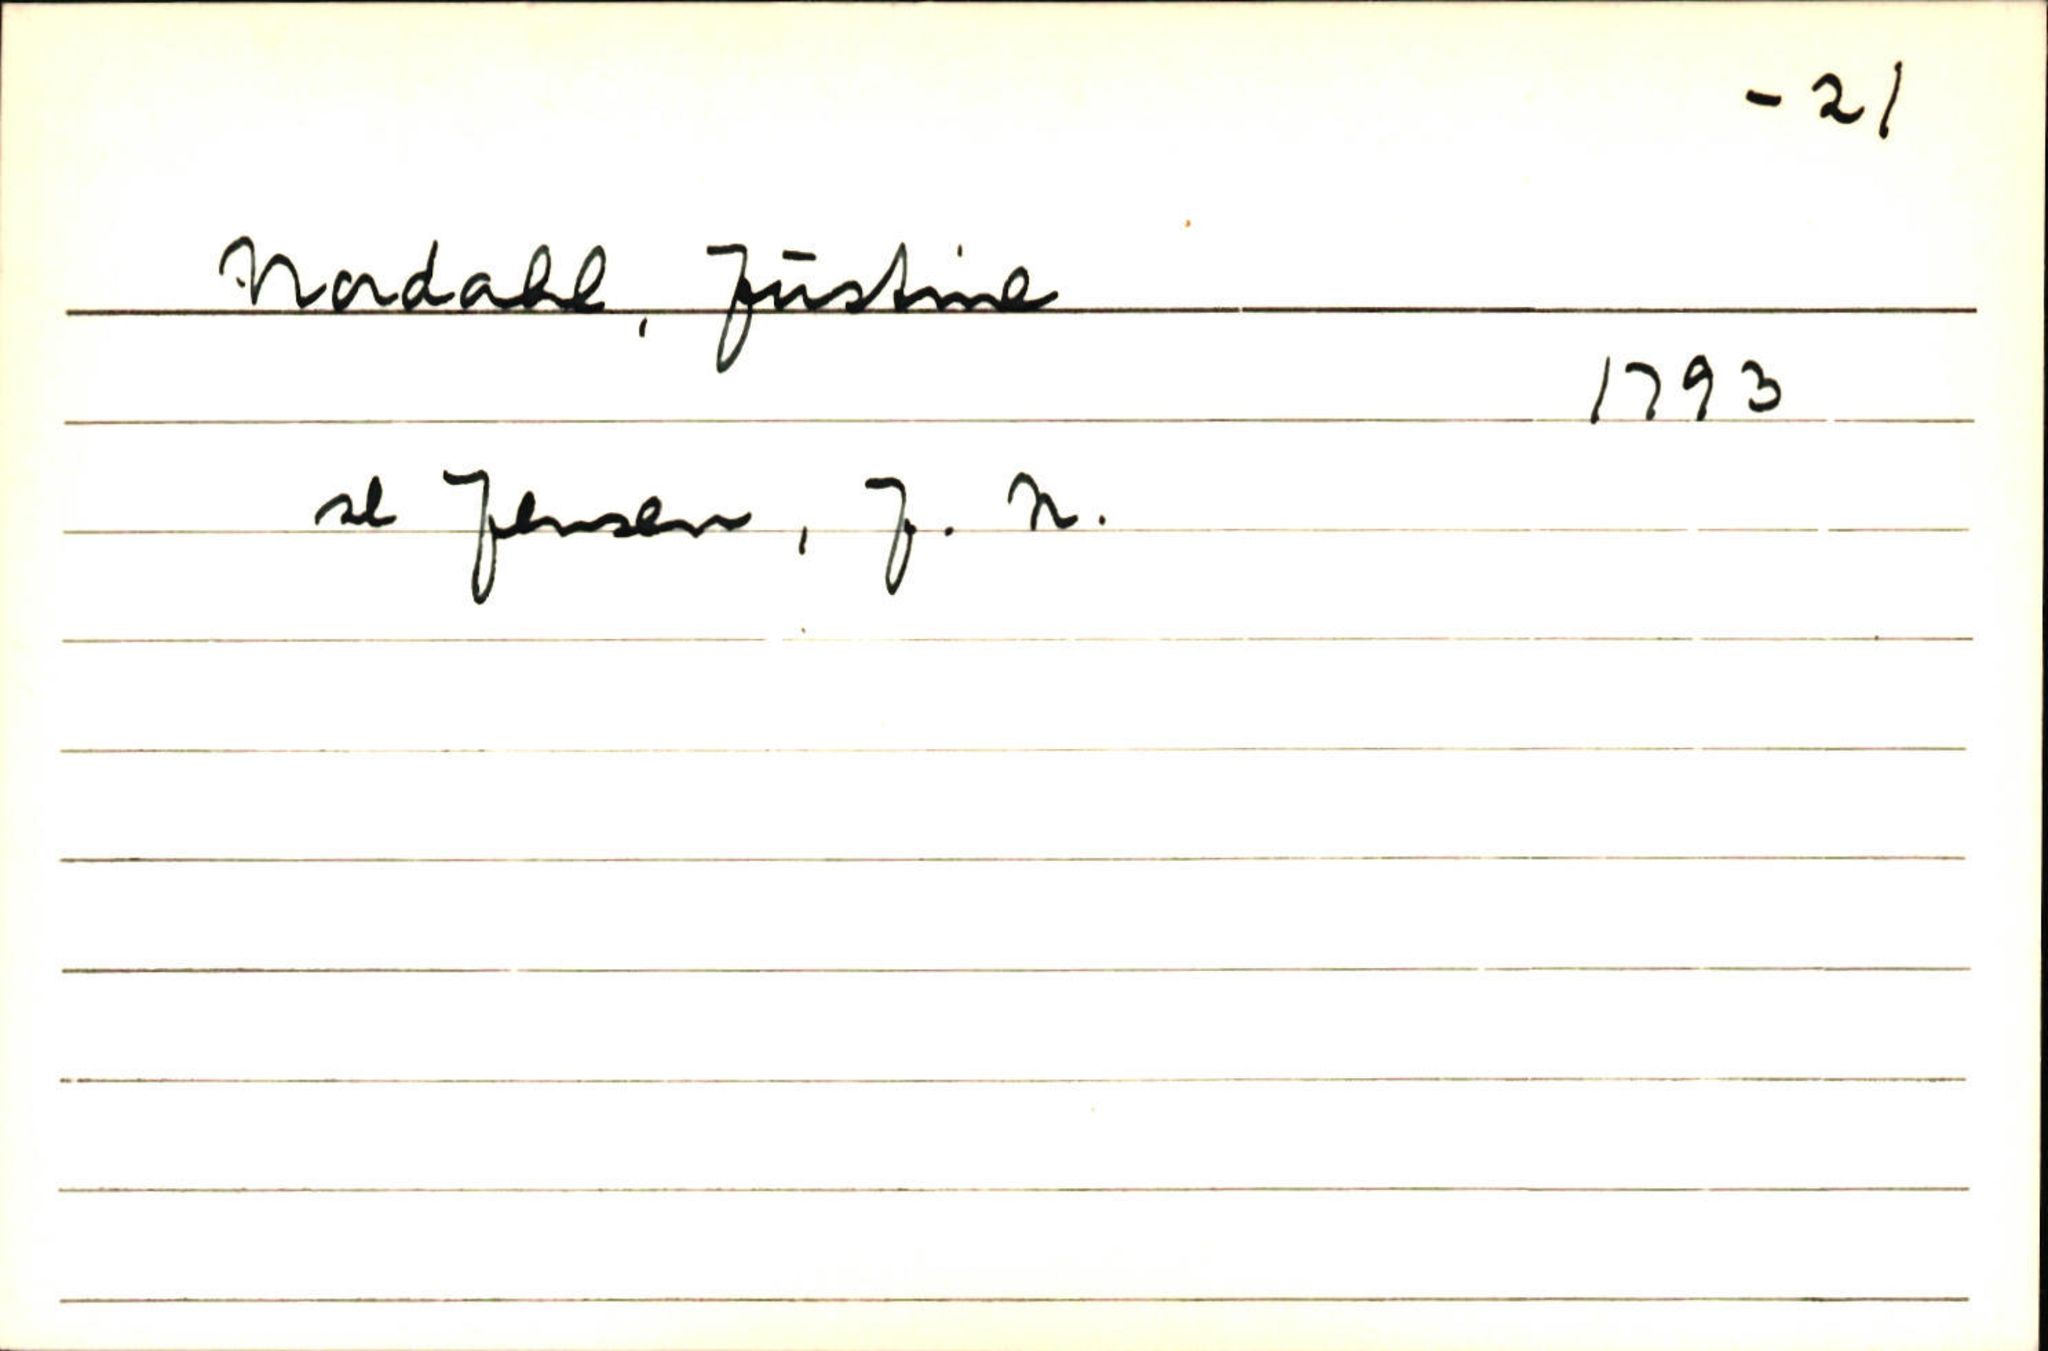 -21
Nordahl, Justine
1793
se Jensen, J. N.